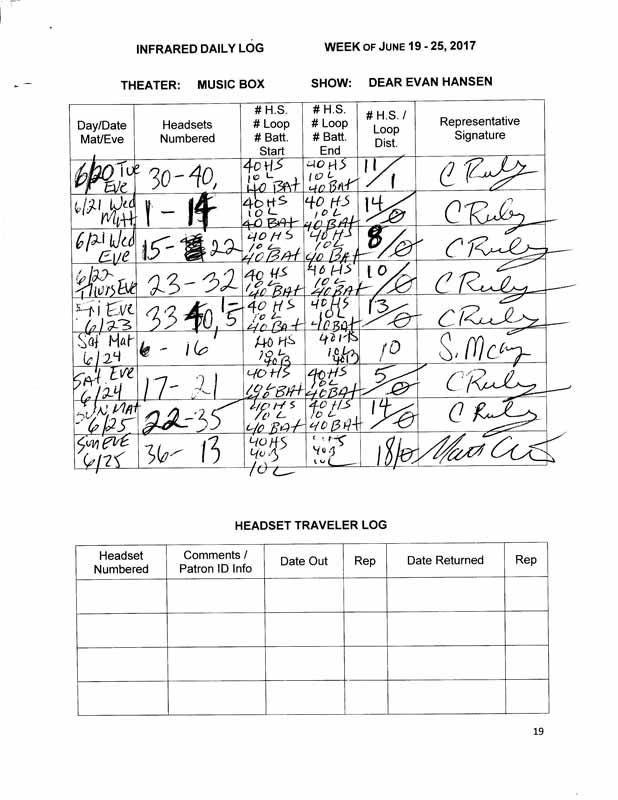 INFRARED DAILY LOG WEEK OF JUNE 19 - 25, 2017
THEATER: MUSIC BOX SHOW: DEAR EVAN HANSEN
Day/Date Mat/Eve Headsets Numbered # H.S. # Loop # Batt. Start # H.S. # Loop # Batt. End # H.S. / Loop Dist. Representative Signature
6/20 Tue Eve 30-40, 40 HS 10 L 40 BAt 40 HS 10 L 40 BAt 11/1 C Ruby
6/21 Wed Matt 1-14 40 HS 10 L 40 BAt 40 HS 10 L 40 BAt 14/0 C Ruby
6/21 Wed Eve 15- 22 40 HS 10 L 40 BAt 40 HS 10 L 40 BAt 8/0 C Ruby
6/22 Thurs Eve 23-32 40 HS 10 L 40 BAt 40 HS 10 L 40 BAt 10/0 C Ruby
Fri Eve 6/23 33 40, 1-5 40 HS 10 L 40 BAt 40 HS 10 L 40 BAt 13/0 C Ruby
Sat Mat 6/24 6 - 16 40 HS 10 L 40 B 40 HS 10 L 40 B 10 S. McCay
SAt Eve 6/24 17-21 40 HS 10 L 40 BAt 40 HS 10 L 40 BAt 5/0 C Ruby
SUN MAt 6/25 22-35 40 HS 10 L 40 BAt 40 HS 10 L 40 BAt 14/0 C Ruby
Sun EVE 6/25 36- 13 40 HS 40 B 10 L 40 B 18/0 Matt
HEADSET TRAVELER LOG
Headset Numbered Comments / Patron ID Info Date Out Rep Date Returned Rep
19